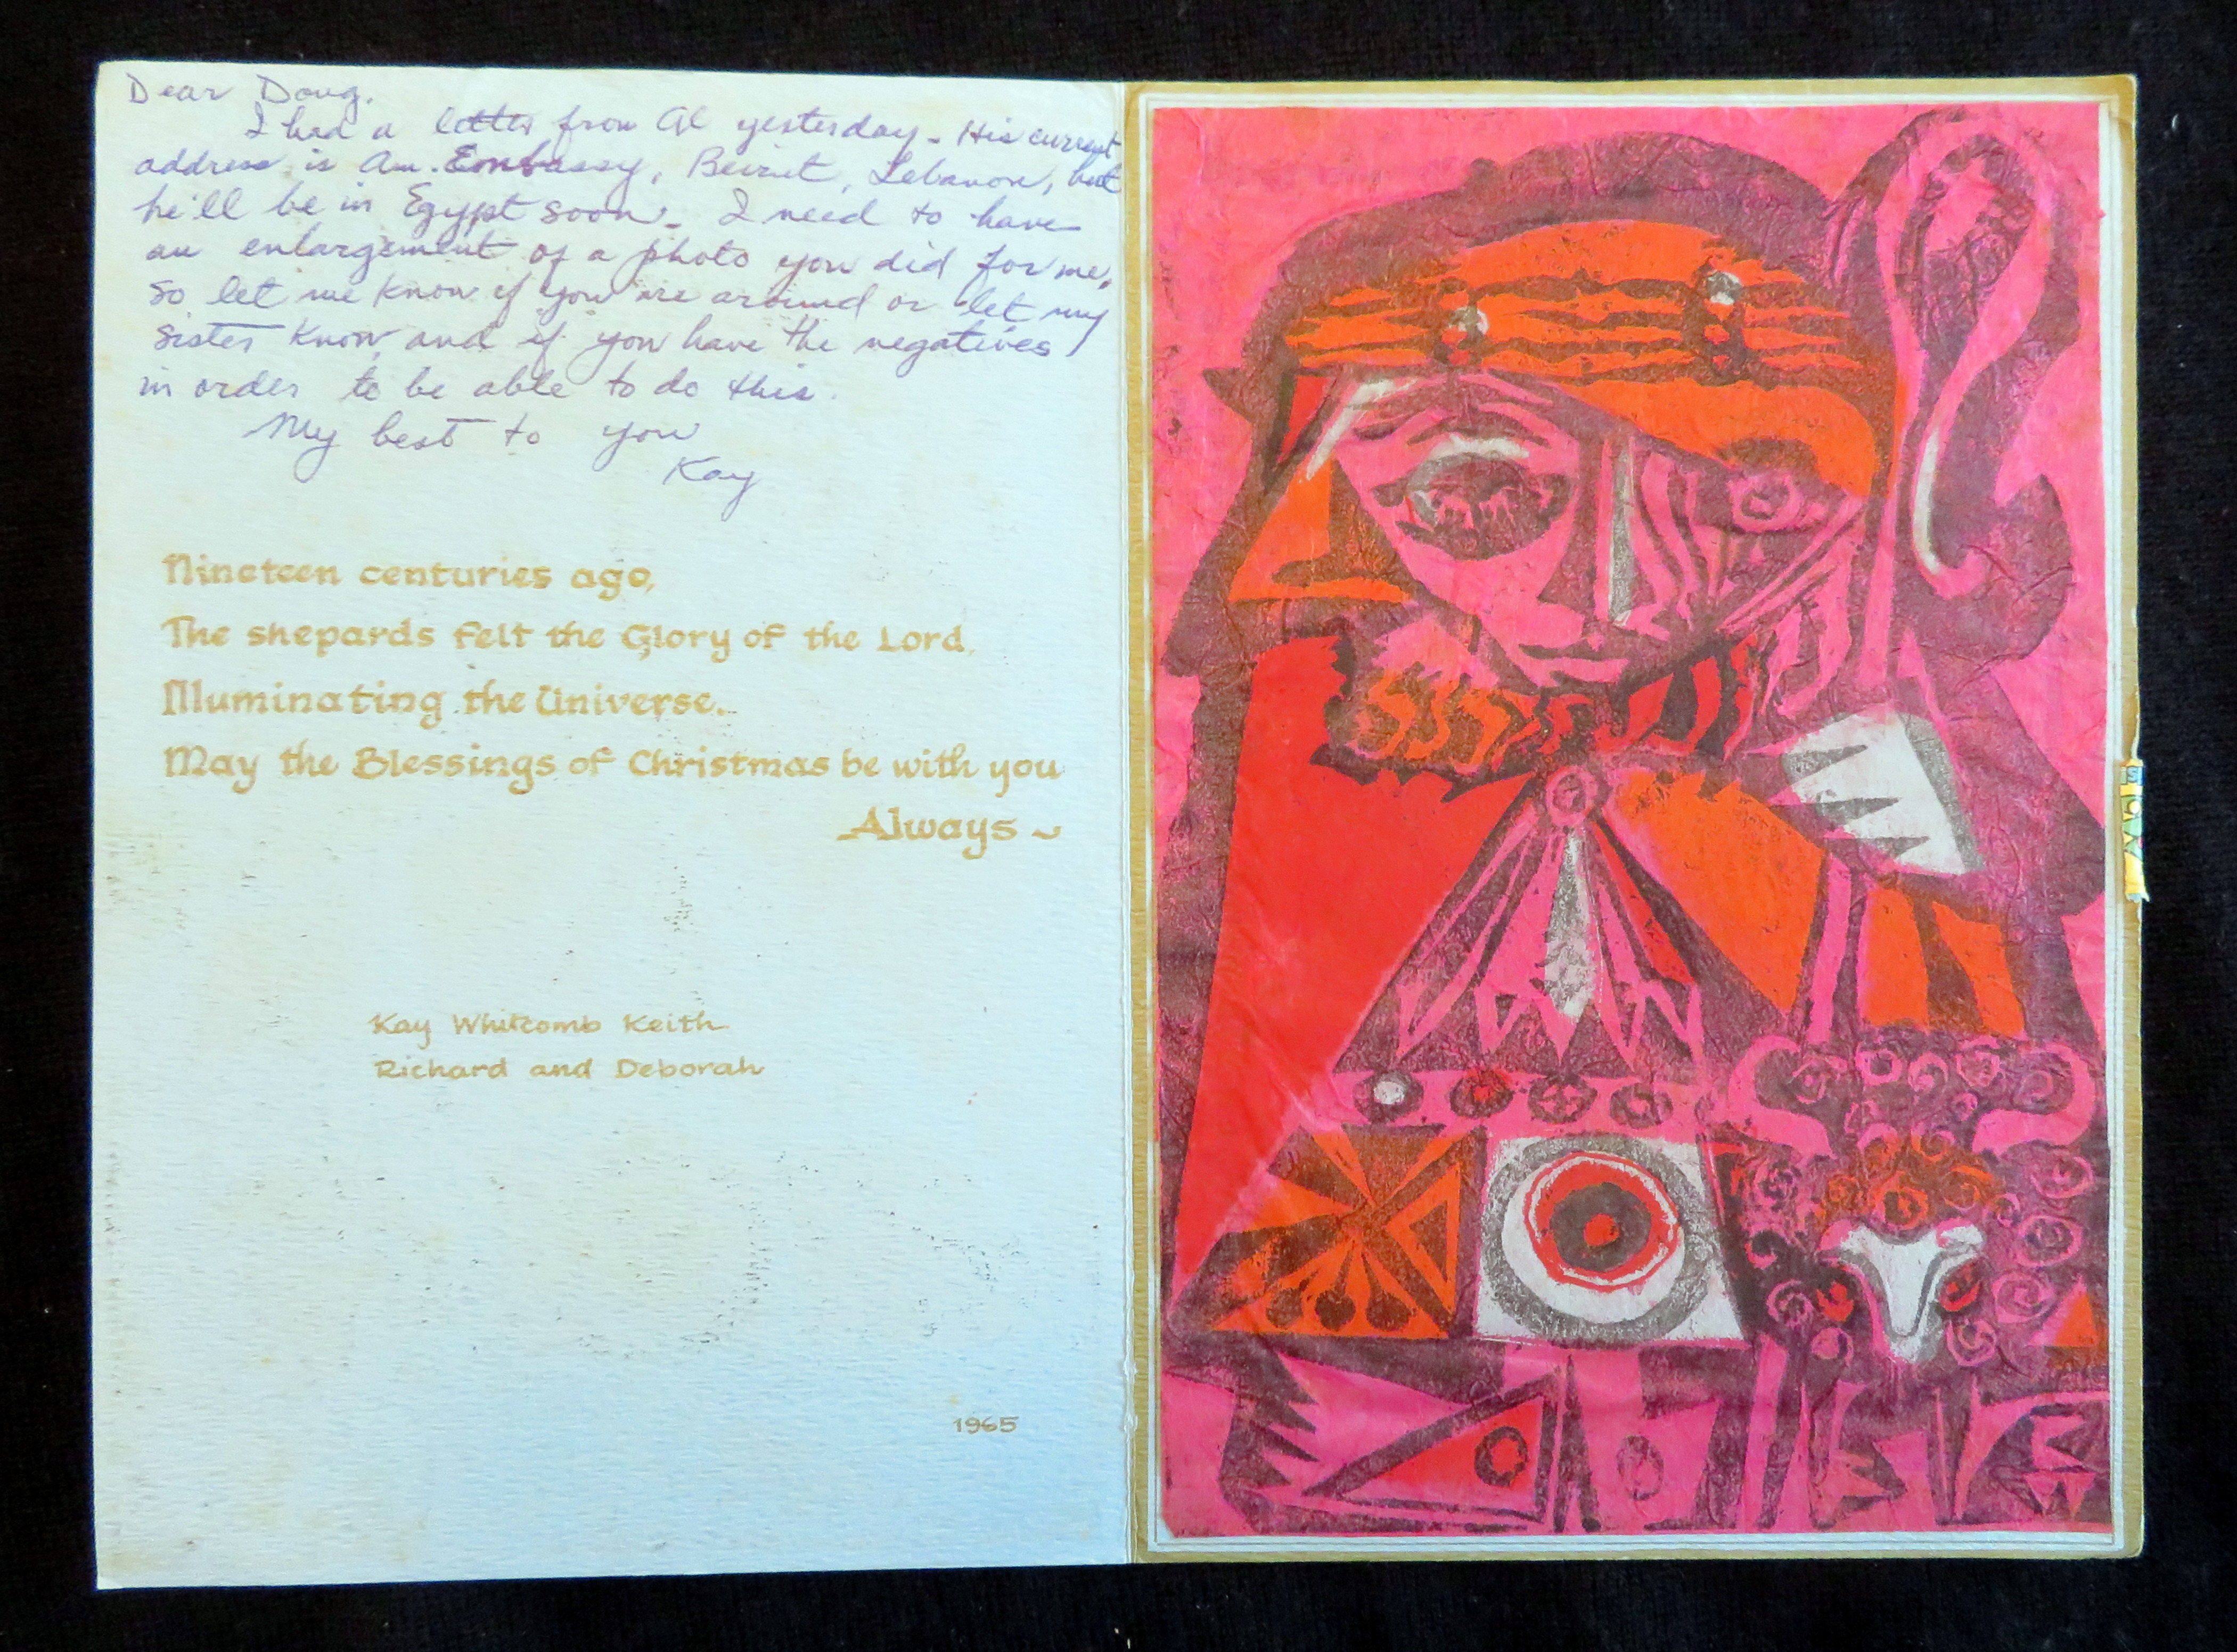 Dear Doug,
I had a letter from Al yesterday - His current
address is Am. Embassy, Beirut, Lebanon, but
he'll be in Egypt soon - I need to have
an enlargement of a photo you did for me,
so let me know if you are around or let my
sister know, and if you have the negatives
in order to be able to do this.
My best to you
Kay
Nineteen centuries ago,
The shepards felt the Glory of the Lord,
Illuminating the Universe.
May the Blessings of Christmas be with you
Always ~
Kay Whitcomb Keith
Richard and Deborah
1965